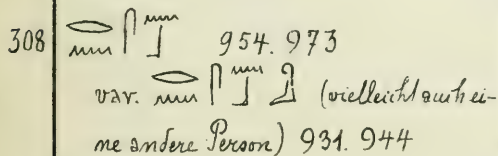 308 𓂋𓈖𓋴𓈖𓃀 954. 973
var. 𓂋𓈖𓋴𓈖𓃀 (vielleicht auch ei-
ne andere Person) 931. 944